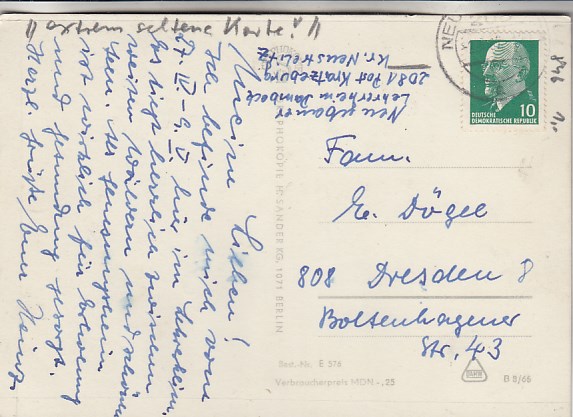 "extrem seltene Karte!"
Meine Lieben!
Ich befinde mich vom
17. IV. - 9. V. hier im Lehrerheim.
Es liegt herrlich zwischen
weiten Wäldern und schönen
Seen. Als Genesungsheim
ist wirklich für Erholung
und Gesundung gesorgt.
Herzl. Grüße Euer Heinz
Neu
Lehrerheim Dambeck
2081 Post Kratzeburg
Kr. Neustrelitz
NEU
10
DEUTSCHE
DEMOKRATISCHE REPUBLIK
Fam.
E. Dögel
808 Dresden 8
Boltenhagener
Str. 43
SANDER KG, 1071 BERLIN
Best.-Nr. E 576
Verbraucherpreis MDN -,25
B 11/66